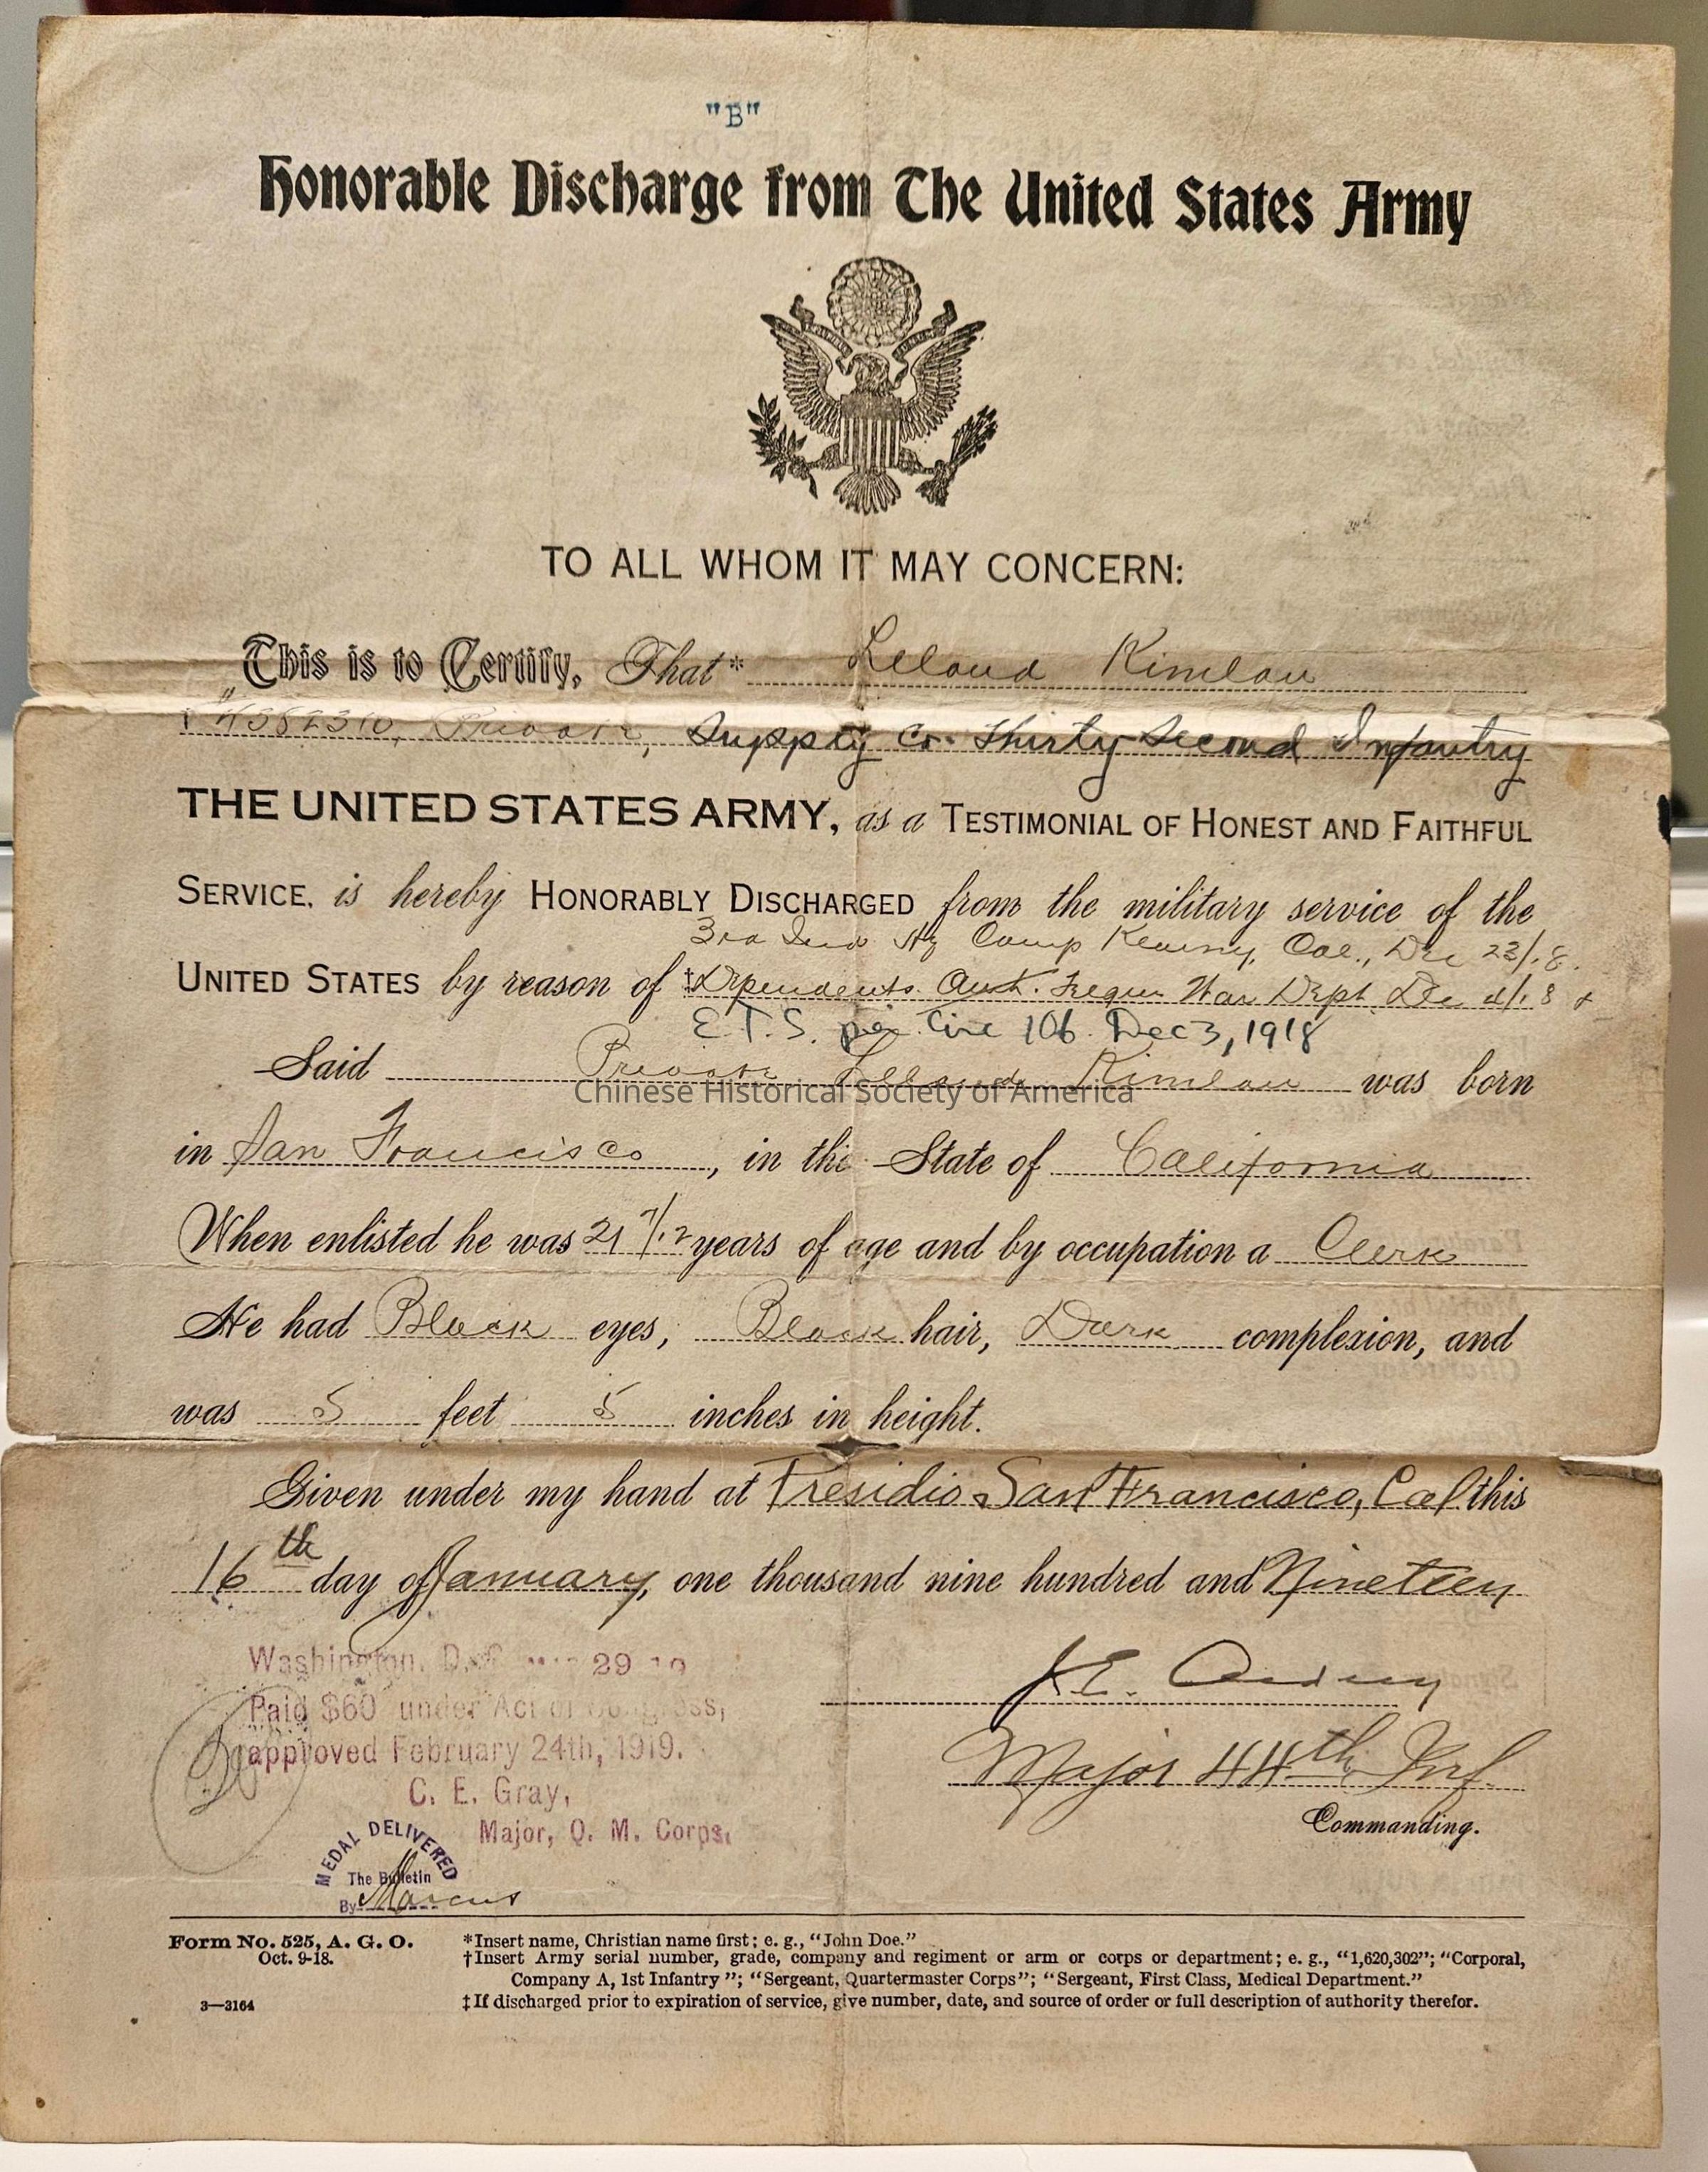 "B"
Honorable Discharge from The United States Army
TO ALL WHOM IT MAY CONCERN:
This is to Certify, That* Leland Kimlau
Private, Supply Co. Thirty Second Infantry
THE UNITED STATES ARMY, as a TESTIMONIAL OF HONEST AND FAITHFUL
SERVICE, is hereby HONORABLY DISCHARGED from the military service of the
3rd Ind Hq Camp Kearny, Cal., Dec 23/18.
UNITED STATES by reason of ‡Dependents. War Dept Dec 4/18 +
E.T.S. per Circ 106 Dec 3, 1918
Said Private Leland Kimlau was born
Chinese Historical Society of America
in San Francisco, in the State of California
When enlisted he was 21 7/12 years of age and by occupation a Clerk
He had Black eyes, Black hair, Dark complexion, and
was 5 feet 5 inches in height.
Given under my hand at Presidio San Francisco, Cal. this
16th day of January, one thousand nine hundred and Nineteen
Washington, D.C. 29 19
Paid $60 under Act of Congress,
approved February 24th, 1919.
C. E. Gray,
Major, Q. M. Corps.
J.E.
Major 44th Inf.
Commanding.
MEDAL DELIVERED
The Bulletin
By Marcus
Form No. 525, A. G. O.
Oct. 9-18.
3—3164
*Insert name, Christian name first; e. g., "John Doe."
†Insert Army serial number, grade, company and regiment or arm or corps or department; e. g., "1,620,302"; "Corporal,
Company A, 1st Infantry"; "Sergeant, Quartermaster Corps"; "Sergeant, First Class, Medical Department."
‡If discharged prior to expiration of service, give number, date, and source of order or full description of authority therefor.